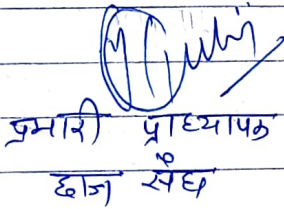 प्रभारी प्राध्यापक
छात्र संघ